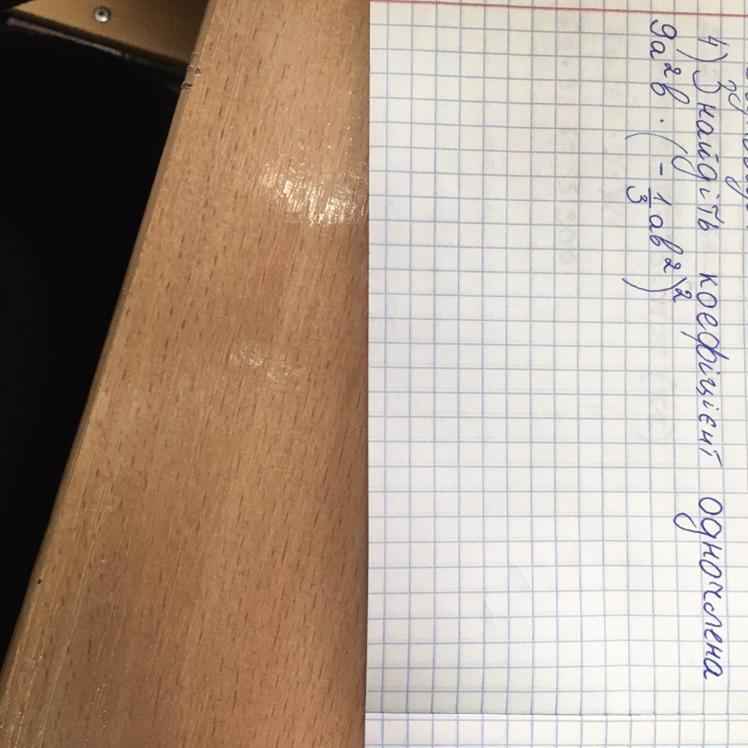 4) Знайдіть коефіцієнт одночлена
9a²b · (-1/3 ab²)²